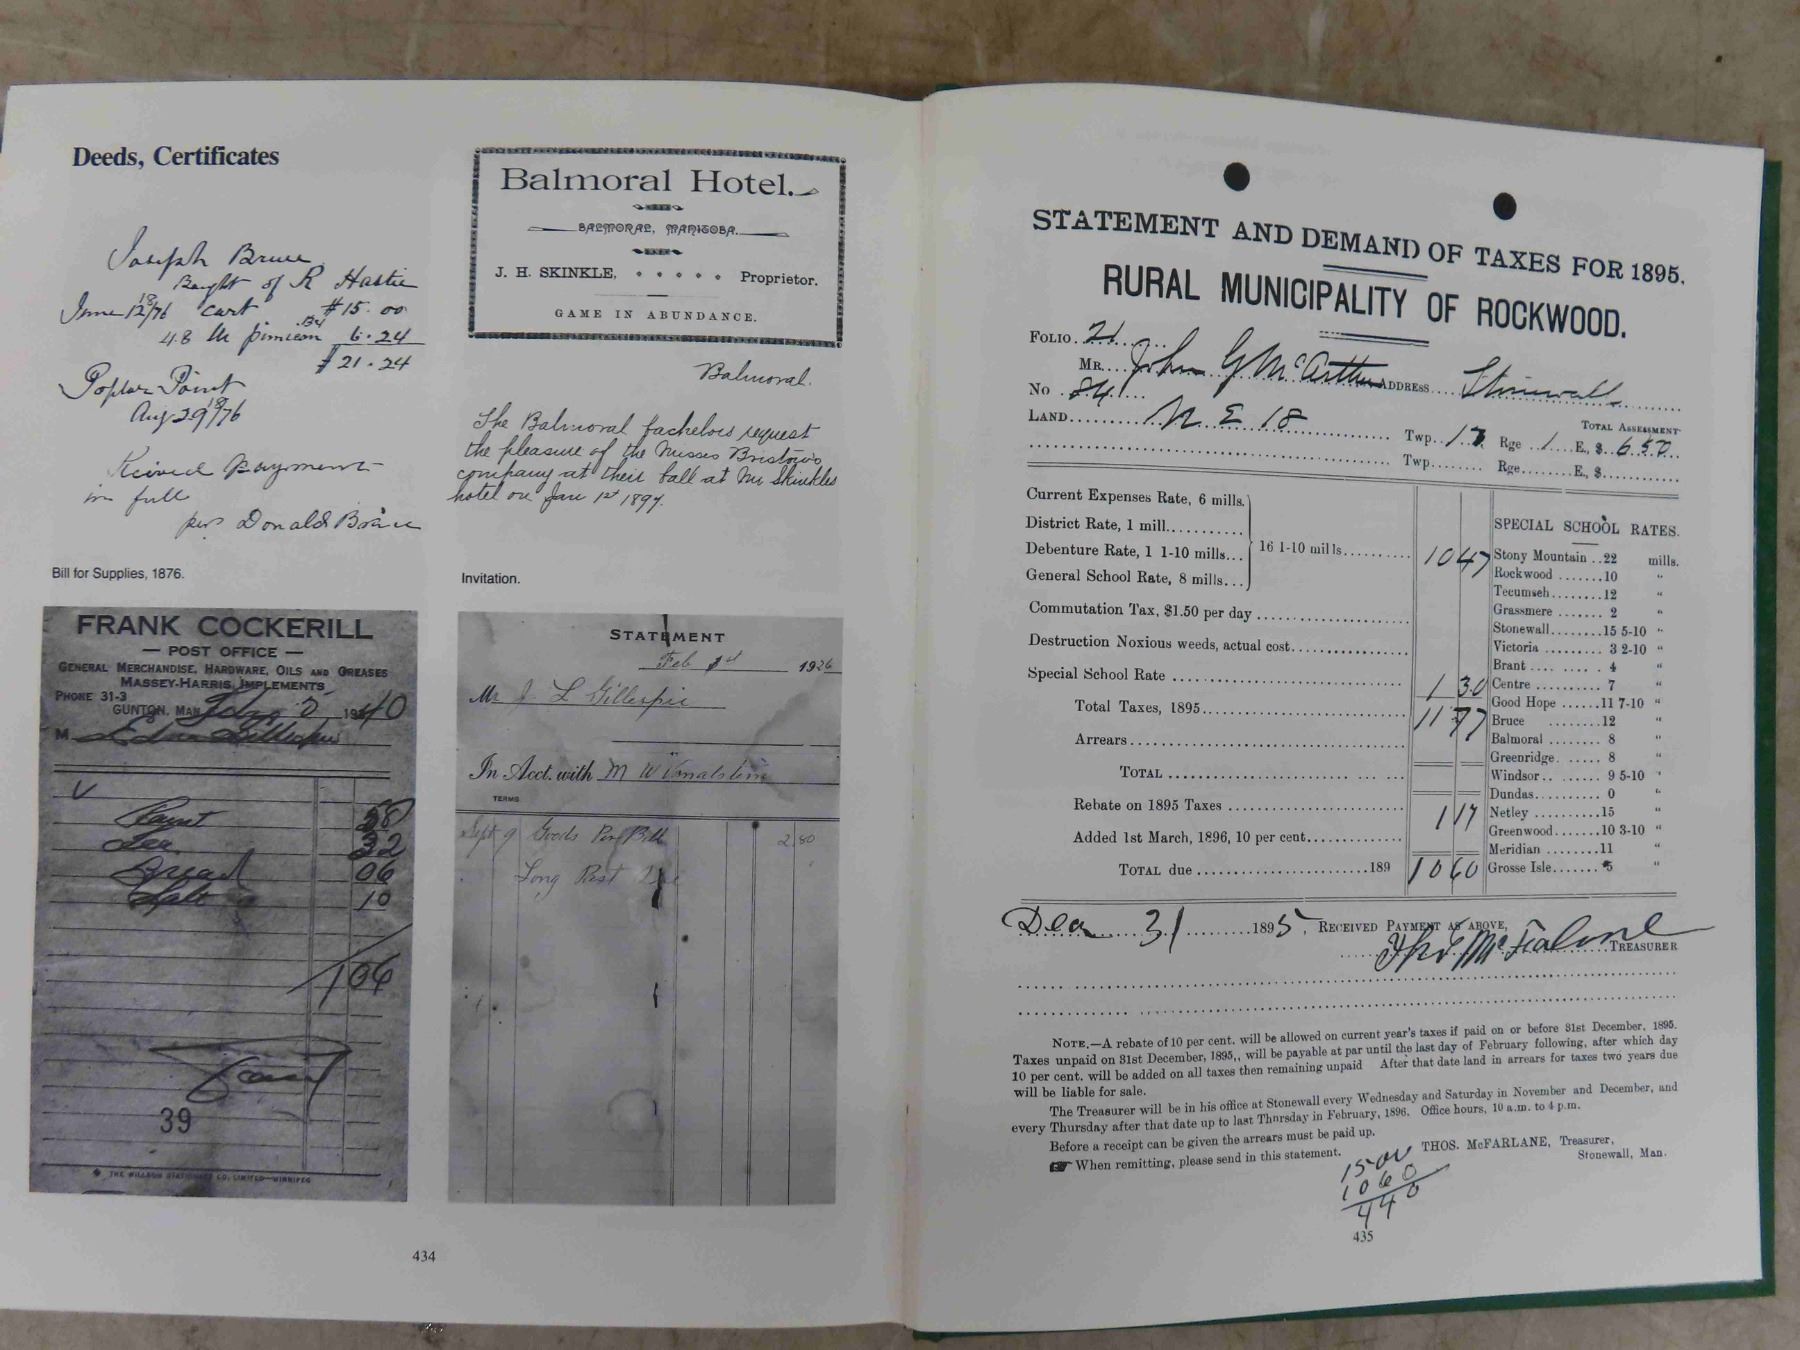 Deeds, Certificates
Joseph Bruce
Bought of R Hastie
June 12 18/76 cart $15.00
48 lb pimican 6.24
$21.24
Poplar Point
Aug 29 18/76
Reived Payment
in full
per Donald Bruce
Bill for Supplies, 1876.
Balmoral Hotel.
BALMORAL, MANITOBA.
J. H. SKINKLE, Proprietor.
GAME IN ABUNDANCE.
Balmoral.
The Balmoral bachelors request
the pleasure of the Misses Bristow's
company at their ball at Mr Skinkles
hotel on Jan 1st 1897.
Invitation.
FRANK COCKERILL
— POST OFFICE —
GENERAL MERCHANDISE, HARDWARE, OILS AND GREASES
MASSEY-HARRIS IMPLEMENTS
PHONE 31-3
GUNTON, MAN. 1940
M Edna Gillespie
Paint 58
32
Bread 06
Salt 10
1 06
39
THE WILLSON STATIONERY CO. LIMITED—WINNIPEG
STATEMENT
Feb 1st 1926
Mr J L Gillespie
In Acct. with M W Vanalstine
TERMS
Sept 9 Goods Per Bill 2.80
Long Past Due
434
STATEMENT AND DEMAND OF TAXES FOR 1895.
RURAL MUNICIPALITY OF ROCKWOOD.
FOLIO. 21
MR. John G McArthur ADDRESS Stonewall
No. 84
LAND N E 18 Twp. 13 Rge 1 E., $. 650 TOTAL ASSESSMENT
Twp........ Rge........E., $............
Current Expenses Rate, 6 mills.
District Rate, 1 mill..........
Debenture Rate, 1 1-10 mills...
General School Rate, 8 mills...
16 1-10 mills.......... 10 47
Commutation Tax, $1.50 per day
Destruction Noxious weeds, actual cost
Special School Rate 1 30
Total Taxes, 1895 11 77
Arrears
TOTAL
Rebate on 1895 Taxes 1 17
Added 1st March, 1896, 10 per cent
TOTAL due 189 10 60
SPECIAL SCHOOL RATES.
Stony Mountain ..22 mills.
Rockwood .......10 "
Tecumseh........12 "
Grassmere ....... 2 "
Stonewall........15 5-10 "
Victoria ......... 3 2-10 "
Brant .... ..... . 4 "
Centre .......... 7 "
Good Hope ......11 7-10 "
Bruce 12 "
Balmoral ........ 8 "
Greenridge. ..... 8 "
Windsor.. ...... 9 5-10 "
Dundas.......... 0 "
Netley ..........15 "
Greenwood.......10 3-10 "
Meridian ........11 "
Grosse Isle....... 5 "
Dec 31 1895, RECEIVED PAYMENT AS ABOVE,
Thos McFarlane TREASURER
NOTE.—A rebate of 10 per cent. will be allowed on current year's taxes if paid on or before 31st December, 1895.
Taxes unpaid on 31st December, 1895,, will be payable at par until the last day of February following, after which day
10 per cent. will be added on all taxes then remaining unpaid After that date land in arrears for taxes two years due
will be liable for sale.
The Treasurer will be in his office at Stonewall every Wednesday and Saturday in November and December, and
every Thursday after that date up to last Thursday in February, 1896. Office hours, 10 a.m. to 4 p.m.
Before a receipt can be given the arrears must be paid up.
When remitting, please send in this statement.
THOS. McFARLANE, Treasurer,
Stonewall, Man.
15 00
10 60
4 40
435